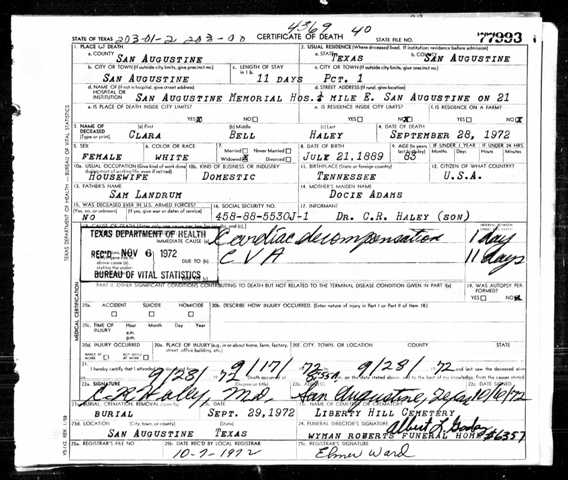 4369 40
STATE OF TEXAS 203-01-2 203-00 CERTIFICATE OF DEATH STATE FILE NO. 77993
1. PLACE OF DEATH 2. USUAL RESIDENCE (Where deceased lived. If institution: residence before admission)
a. COUNTY a. STATE b. COUNTY
SAN AUGUSTINE TEXAS SAN AUGUSTINE
b. CITY OR TOWN (If outside city limits, give precinct no.) c. LENGTH OF STAY c. CITY OR TOWN (If outside city limits, give precinct no.)
SAN AUGUSTINE 11 DAYS PCT. 1
d. NAME OF (If not in hospital, give street address) d. STREET ADDRESS (If rural, give location)
HOSPITAL OR INSTITUTION SAN AUGUSTINE MEMORIAL HOS. ¼ MILE E. SAN AUGUSTINE ON 21
e. IS PLACE OF DEATH INSIDE CITY LIMITS? e. IS RESIDENCE INSIDE CITY LIMITS? f. IS RESIDENCE ON A FARM?
YES X NO YES NO X YES NO X
3. NAME OF DECEASED (a) First (b) Middle (c) Last 4. DATE OF DEATH
(Type or print) CLARA BELL HALEY SEPTEMBER 28, 1972
5. SEX 6. COLOR OR RACE 7. Married Never Married 8. DATE OF BIRTH 9. AGE IF UNDER 1 YEAR IF UNDER 24 HRS.
FEMALE WHITE Widowed X Divorced JULY 21.1889 83 Months Days Hours Min.
10a. USUAL OCCUPATION 10b. KIND OF BUSINESS OR INDUSTRY 11. BIRTHPLACE (State or foreign country) 12. CITIZEN OF WHAT COUNTRY?
HOUSEWIFE DOMESTIC TENNESSEE U.S.A.
13. FATHER'S NAME 14. MOTHER'S MAIDEN NAME
SAM LANDRUM DOCIE ADAMS
15. WAS DECEASED EVER IN U.S. ARMED FORCES? 16. SOCIAL SECURITY NO. 17. INFORMANT
NO 458-88-5530J-1 DR. C.R. HALEY (SON)
TEXAS DEPARTMENT OF HEALTH
REC'D NOV 6 1972
BUREAU OF VITAL STATISTICS
IMMEDIATE CAUSE (a) Cardiac decompensation 1 day
DUE TO (b) C V A 11 days
PART II. OTHER SIGNIFICANT CONDITIONS CONTRIBUTING TO DEATH BUT NOT RELATED TO THE TERMINAL DISEASE CONDITION GIVEN IN PART I(a) 19. WAS AUTOPSY PERFORMED?
YES NO X
20a. ACCIDENT SUICIDE HOMICIDE 20b. DESCRIBE HOW INJURY OCCURRED. (Enter nature of injury in Part I or Part II of Item 18)
20c. TIME OF INJURY Hour Month Day Year
a.m.
p.m.
20d. INJURY OCCURRED 20e. PLACE OF INJURY (e.g., in or about home, farm, factory, street, office building, etc.) 20f. CITY, TOWN, OR LOCATION COUNTY STATE
WHILE AT WORK NOT WHILE AT WORK
21. I hereby certify that I attended 9/17 72 9/28 72 and last saw the deceased alive
9/28 72
22a. SIGNATURE (Degree or title) 22b. ADDRESS 22c. DATE SIGNED
C.R. Haley, M.D. San Augustine, Texas 10/6/72
23a. BURIAL, CREMATION, REMOVAL 23b. DATE 23c. NAME OF CEMETERY OR CREMATORY
BURIAL SEPT. 29,1972 LIBERTY HILL CEMETERY
23d. LOCATION (City, town, or county) (State) 24. FUNERAL DIRECTOR'S SIGNATURE
SAN AUGUSTINE TEXAS WYMAN ROBERTS FUNERAL HOME #6357
25a. REGISTRAR'S FILE NO. 25b. DATE REC'D BY LOCAL REGISTRAR 25c. REGISTRAR'S SIGNATURE
10-7-1972 Elmer Ward
TEXAS DEPARTMENT OF HEALTH - BUREAU OF VITAL STATISTICS
MEDICAL CERTIFICATION